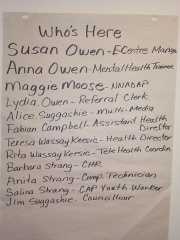 Who's Here
Susan Owen - ECentre Manager
Anna Owen - Mental Health Trainee
Maggie Moose - NNADAP
Lydia Owen - Referral Clerk
Alice Suggashie - Multi-Media
Fabian Campbell Assistant Health
Director
Teresa Wassay Keesic - Health Director
Rita Wassay Keesic - Tele Health Coordin
Barbara Strang - CHR
Anita Strang - Comp Technician
Salina Strang - CAP Youth Worker
Jim Suggashie - Councillour